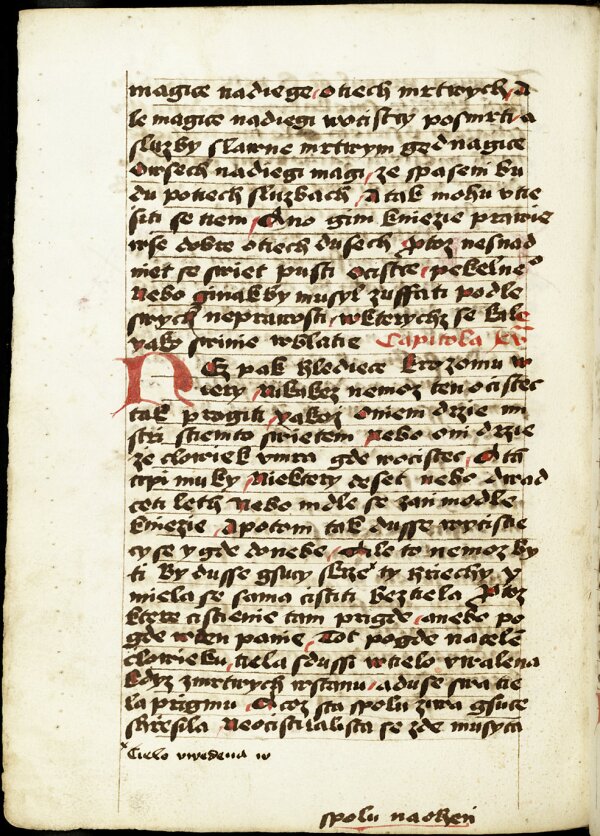 magice nadiege otiech mrtwych A
le magice nadiegi wocistcy posmrti a
sluzby slawne mrtwym gednagice
Owsech nadiegi magi ze spaseni bu
du potiech sluzbach A tak mohu vtie
siti se tiem Ano gim kniezie prawie
wse dobre otiech dusech Protoz nesnad
niet se swiet pusti ocistce pekelne
Nebo ginak by musyl zuffati podle
swych neprawosti wkterychz se kale
yako swinie wblatie Capitola xv
NEz pak hlediece krozomu w
viery Nikakez nemoz ten ocistec
tak progiti yakoz oniem drzie mi
stri sciemto swietem Nebo oni drzie
ze clowiek vmra gde wocistec A tu
trpi muky Niektery deset nebo dwad
ceti leth Nebo mdle se zan modle
kniezie A potom tak dusse wycistie
cy se y gde donebe Ale to nemoz by
ti By dusse gsucy skrze ty hriechy y
miela se sama cistiti bez tiela Protoz
ktere cistienie tam prigde anebo po
gde wden panie Tot pogde nacele
clowieku tiela sdussi wtielo vwalena
kdyz zmrtwych wstanu a duse swa tie
la prigmu A coz sta spolu ziwa gsuce
shresila Neocistilalista se zde musyta
Cielo vwedena w
spolu naohen